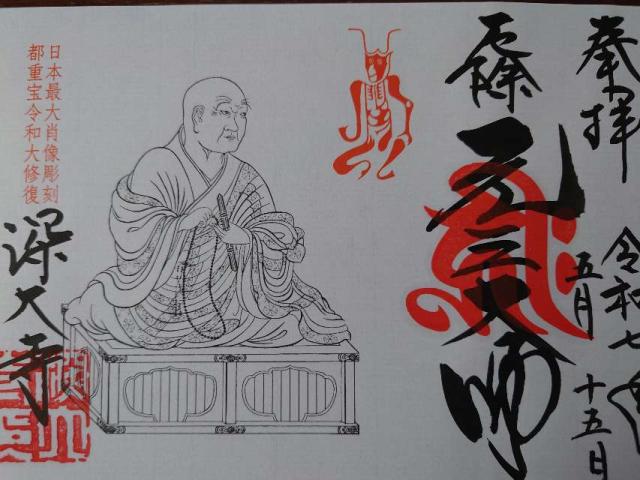 奉拝
令和七年
五月十五日
元三大師
日本最大肖像彫刻
都重宝令和大修復
深大寺